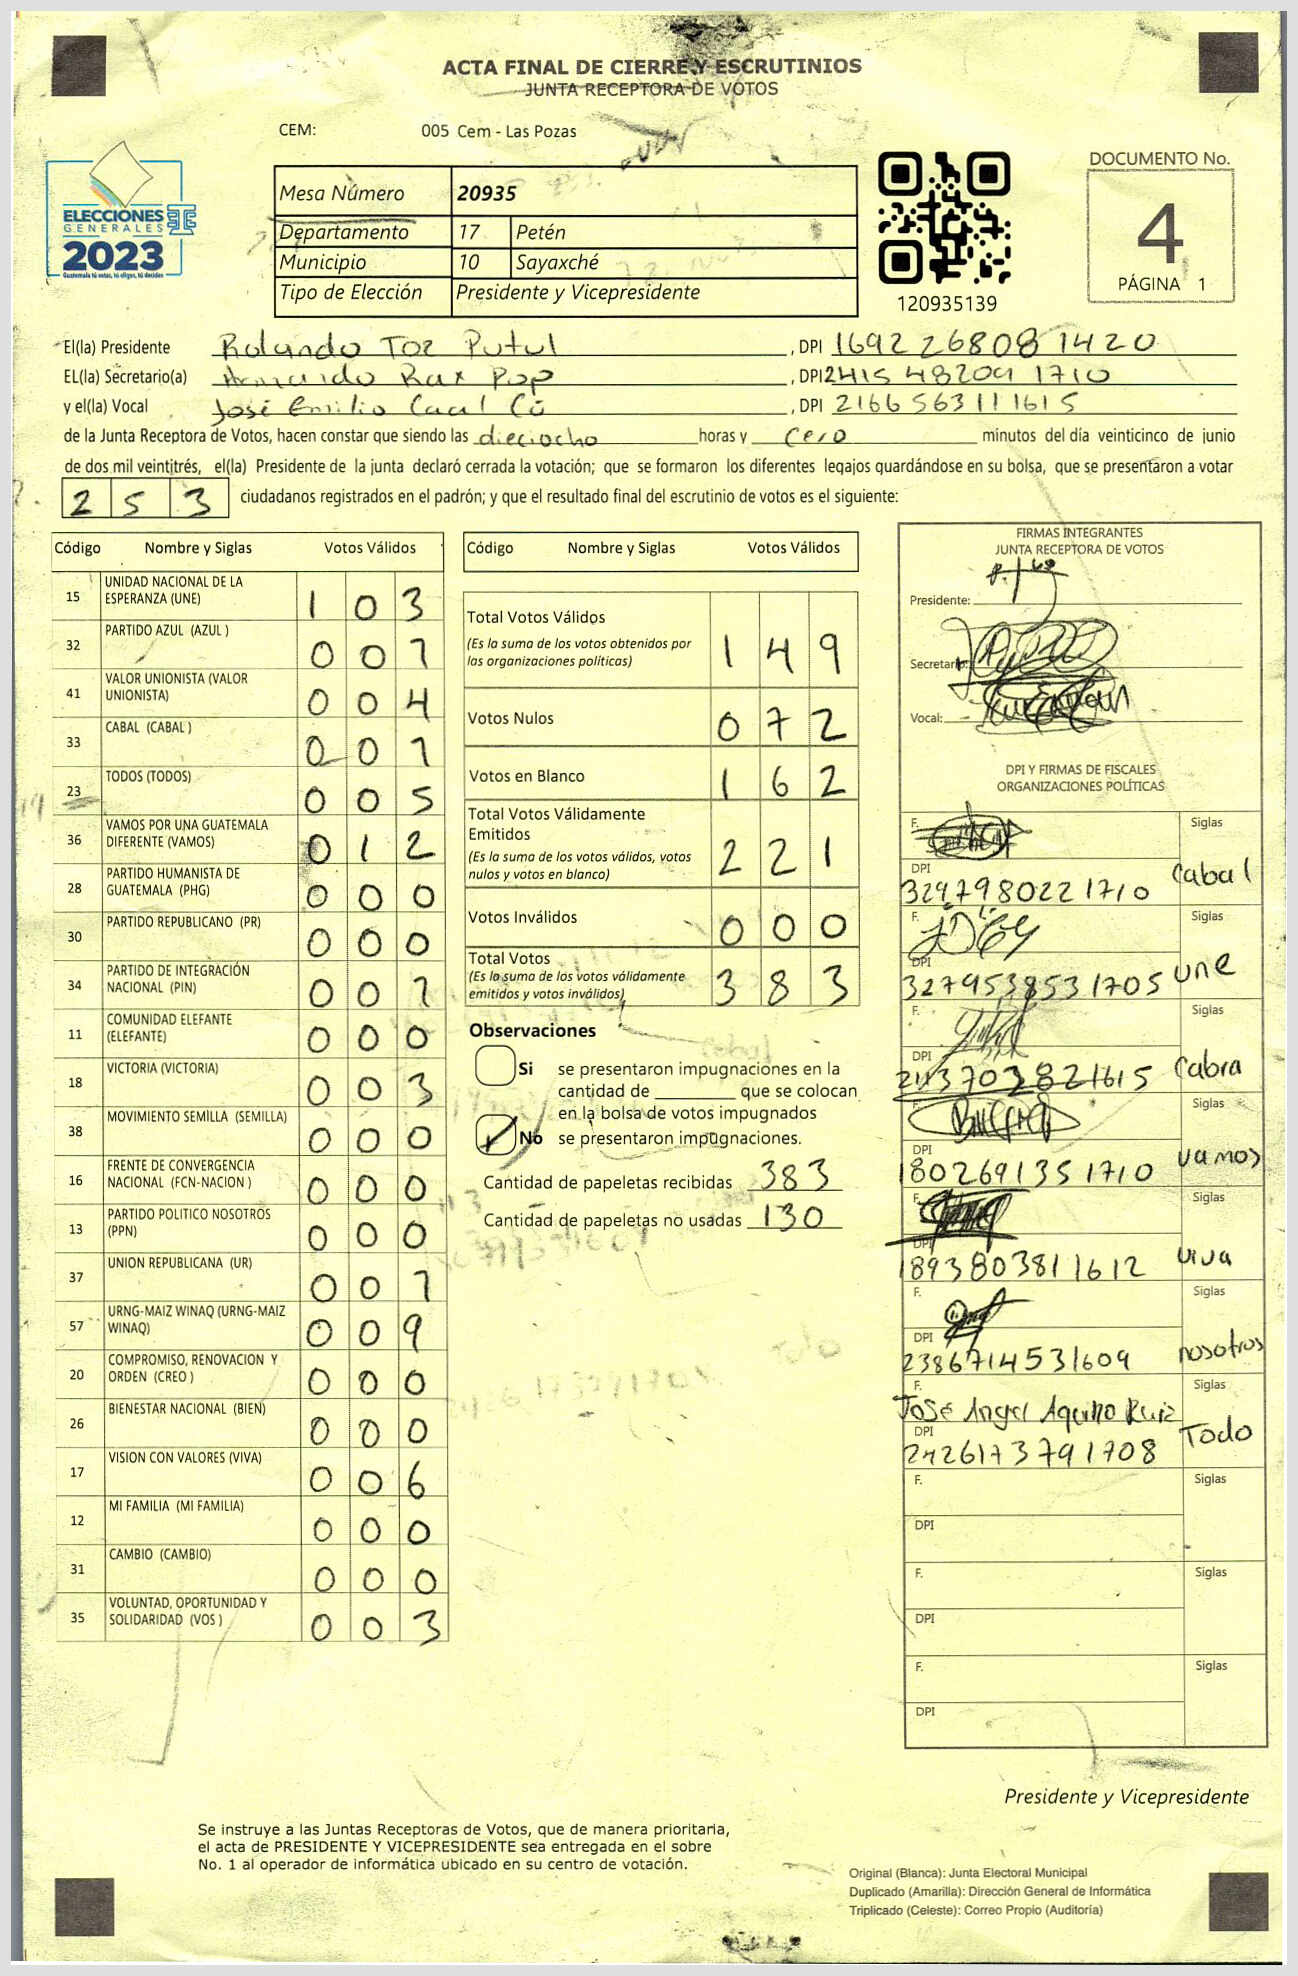 ACTA FINAL DE CIERRE Y ESCRUTINIOS
JUNTA RECEPTORA DE VOTOS
CEM: 005 Cem - Las Pozas
ELECCIONES
GENERALES
2023
Guatemala tú votas, tú eliges, tú decides
Mesa Número 20935
Departamento 17 Petén
Municipio 10 Sayaxché
Tipo de Elección Presidente y Vicepresidente
120935139
DOCUMENTO No.
4
PÁGINA 1
El(la) Presidente Rolando Toz Putul , DPI 1692268081420
EL(la) Secretario(a) Armando Rax Pop , DPI 2415482091710
y el(la) Vocal José Emilio Caal Cú , DPI 2166563111615
de la Junta Receptora de Votos, hacen constar que siendo las dieciocho horas y cero minutos del día veinticinco de junio
de dos mil veintitrés, el(la) Presidente de la junta declaró cerrada la votación; que se formaron los diferentes legajos quardándose en su bolsa, que se presentaron a votar
2 5 3 ciudadanos registrados en el padrón; y que el resultado final del escrutinio de votos es el siguiente:
Código Nombre y Siglas Votos Válidos
15 UNIDAD NACIONAL DE LA ESPERANZA (UNE) 1 0 3
32 PARTIDO AZUL (AZUL ) 0 0 1
41 VALOR UNIONISTA (VALOR UNIONISTA) 0 0 4
33 CABAL (CABAL ) 0 0 1
23 TODOS (TODOS) 0 0 5
36 VAMOS POR UNA GUATEMALA DIFERENTE (VAMOS) 0 1 2
28 PARTIDO HUMANISTA DE GUATEMALA (PHG) 0 0 0
30 PARTIDO REPUBLICANO (PR) 0 0 0
34 PARTIDO DE INTEGRACIÓN NACIONAL (PIN) 0 0 1
11 COMUNIDAD ELEFANTE (ELEFANTE) 0 0 0
18 VICTORIA (VICTORIA) 0 0 3
38 MOVIMIENTO SEMILLA (SEMILLA) 0 0 0
16 FRENTE DE CONVERGENCIA NACIONAL (FCN-NACION ) 0 0 0
13 PARTIDO POLITICO NOSOTROS (PPN) 0 0 0
37 UNION REPUBLICANA (UR) 0 0 1
57 URNG-MAIZ WINAQ (URNG-MAIZ WINAQ) 0 0 9
20 COMPROMISO, RENOVACION Y ORDEN (CREO ) 0 0 0
26 BIENESTAR NACIONAL (BIEN) 0 0 0
17 VISION CON VALORES (VIVA) 0 0 6
12 MI FAMILIA (MI FAMILIA) 0 0 0
31 CAMBIO (CAMBIO) 0 0 0
35 VOLUNTAD, OPORTUNIDAD Y SOLIDARIDAD (VOS ) 0 0 3
Código Nombre y Siglas Votos Válidos
Total Votos Válidos 1 4 9
(Es la suma de los votos obtenidos por
las organizaciones políticas)
Votos Nulos 0 7 2
Votos en Blanco 1 6 2
Total Votos Válidamente
Emitidos 2 2 1
(Es la suma de los votos válidos, votos
nulos y votos en blanco)
Votos Inválidos 0 0 0
Total Votos 3 8 3
(Es la suma de los votos válidamente
emitidos y votos inválidos)
Observaciones
Si se presentaron impugnaciones en la
cantidad de ________ que se colocan
en la bolsa de votos impugnados
No se presentaron impugnaciones.
Cantidad de papeletas recibidas 383
Cantidad de papeletas no usadas 130
FIRMAS INTEGRANTES
JUNTA RECEPTORA DE VOTOS
Presidente:
Secretario:
Vocal:
DPI Y FIRMAS DE FISCALES
ORGANIZACIONES POLÍTICAS
F. Siglas
DPI
3297980221710 Cabal
F. Siglas
DPI
3279538531705 une
F. Siglas
DPI
2113703821615 Cabra
F. Siglas
DPI
1802691351710 vamos
F. Siglas
DPI
1893803811612 viva
F. Siglas
DPI
2386714531609 nosotros
F. Siglas
José Angel Aquino Ruiz
DPI
2426173791708 Todo
F. Siglas
DPI
F. Siglas
DPI
F. Siglas
DPI
Presidente y Vicepresidente
Se instruye a las Juntas Receptoras de Votos, que de manera prioritaria,
el acta de PRESIDENTE Y VICEPRESIDENTE sea entregada en el sobre
No. 1 al operador de informática ubicado en su centro de votación.
Original (Blanca): Junta Electoral Municipal
Duplicado (Amarilla): Dirección General de Informática
Triplicado (Celeste): Correo Propio (Auditoría)